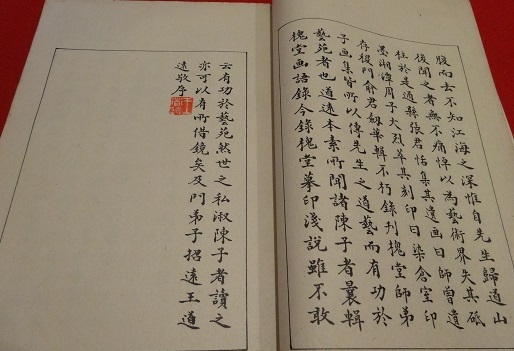 腹而去不知江海之深惟自先生歸道山
後聞之者無不痛悼以為藝術界失其砥
柱於是通縣張君恬集其遺画曰師曾遺
墨湘潭周子大烈萃其刻印曰染倉室印
存復門俞君劔華輯不朽錄刊槐堂師弟
子画集皆所以傳先生之道藝而有功於
藝苑者也道遠本素所聞諸陳子者曩輯
槐堂画語錄今錄槐堂摹印淺說雖不敢
云有功於藝苑然世之私淑陳子者讀之
亦可以有所借鏡矣及門弟子招遠王道
遠敬序